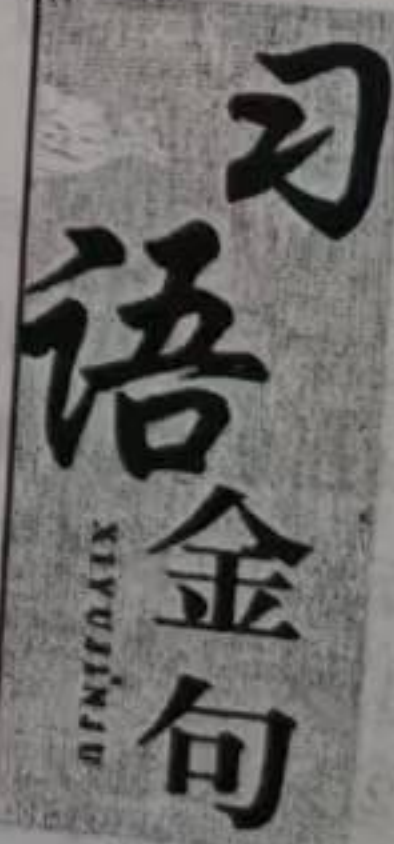 习语金句
XIYUJINJU